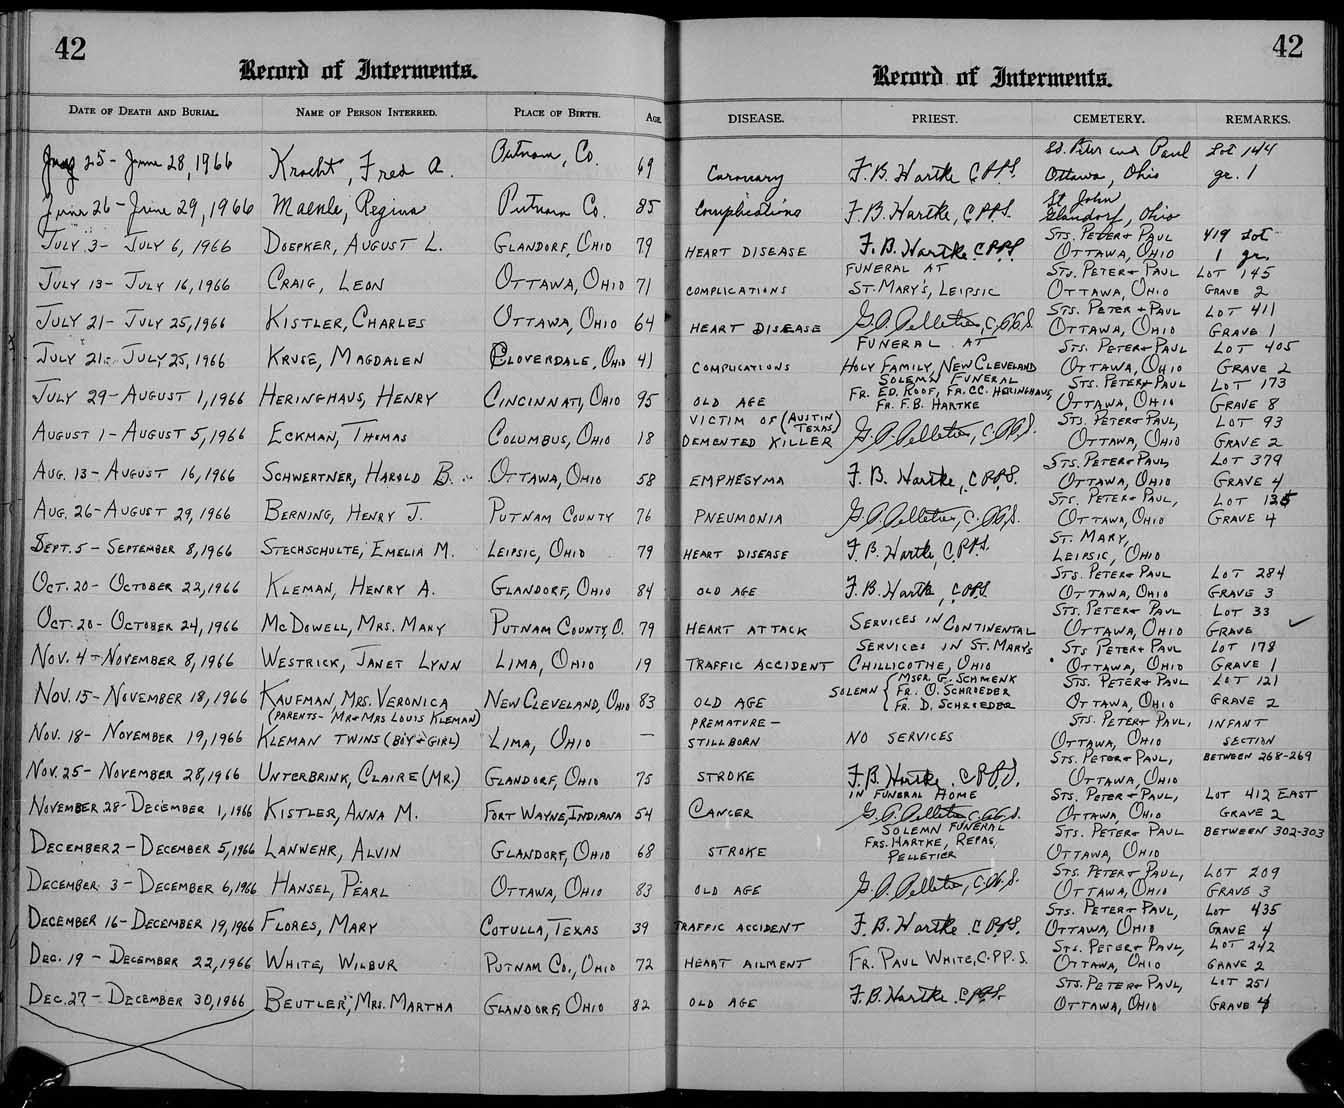 42
Record of Interments.
DATE OF DEATH AND BURIAL. NAME OF PERSON INTERRED. PLACE OF BIRTH. AGE.
25 - June 28, 1966 Kracht, Fred A. Putnam, Co. 69
June 26 - June 29, 1966 Maenle, Regina Putnam Co. 85
JULY 3 - JULY 6, 1966 DOEPKER, AUGUST L. GLANDORF, OHIO 79
JULY 13 - JULY 16, 1966 CRAIG, LEON OTTAWA, OHIO 71
JULY 21 - JULY 25, 1966 KISTLER, CHARLES OTTAWA, OHIO 64
JULY 21 - JULY 25, 1966 KRUSE, MAGDALEN CLOVERDALE, OHIO 41
JULY 29 - AUGUST 1, 1966 HERINGHAUS, HENRY CINCINNATI, OHIO 95
AUGUST 1 - AUGUST 5, 1966 ECKMAN, THOMAS COLUMBUS, OHIO 18
AUG. 13 - AUGUST 16, 1966 SCHWERTNER, HAROLD B. OTTAWA, OHIO 58
AUG. 26 - AUGUST 29, 1966 BERNING, HENRY J. PUTNAM COUNTY 76
SEPT. 5 - SEPTEMBER 8, 1966 STECHSCHULTE, EMELIA M. LEIPSIC, OHIO 79
OCT. 20 - OCTOBER 22, 1966 KLEMAN, HENRY A. GLANDORF, OHIO 84
OCT. 20 - OCTOBER 24, 1966 MCDOWELL, MRS. MARY PUTNAM COUNTY, O. 79
NOV. 4 - NOVEMBER 8, 1966 WESTRICK, JANET LYNN LIMA, OHIO 19
NOV. 15 - NOVEMBER 18, 1966 KAUFMAN, MRS. VERONICA NEW CLEVELAND, OHIO 83
(PARENTS - MR & MRS LOUIS KLEMAN)
NOV. 18 - NOVEMBER 19, 1966 KLEMAN TWINS (BOY & GIRL) LIMA, OHIO —
NOV. 25 - NOVEMBER 28, 1966 UNTERBRINK, CLAIRE (MR.) GLANDORF, OHIO 75
NOVEMBER 28 - DECEMBER 1, 1966 KISTLER, ANNA M. FORT WAYNE, INDIANA 54
DECEMBER 2 - DECEMBER 5, 1966 LANWEHR, ALVIN GLANDORF, OHIO 68
DECEMBER 3 - DECEMBER 6, 1966 HANSEL, PEARL OTTAWA, OHIO 83
DECEMBER 16 - DECEMBER 19, 1966 FLORES, MARY COTULLA, TEXAS 39
DEC. 19 - DECEMBER 22, 1966 WHITE, WILBUR PUTNAM CO., OHIO 72
DEC. 27 - DECEMBER 30, 1966 BEUTLER, MRS. MARTHA GLANDORF, OHIO 82
42
Record of Interments.
DISEASE. PRIEST. CEMETERY. REMARKS.
SS. Peter and Paul Lot 144
Coronary F. B. Hartke C.PP.S. Ottawa, Ohio gr. 1
St John
Complications F. B. Hartke, C.PP.S. Glandorf, Ohio
STS. PETER & PAUL 419 Lot
HEART DISEASE F. B. Hartke C.PP.S. OTTAWA, OHIO 1 gr.
FUNERAL AT STS. PETER & PAUL LOT 145
COMPLICATIONS ST. MARY'S, LEIPSIC OTTAWA, OHIO GRAVE 2
STS. PETER & PAUL LOT 411
HEART DISEASE G. A. Pelletier, C.PP.S. OTTAWA, OHIO GRAVE 1
FUNERAL AT STS. PETER & PAUL LOT 405
COMPLICATIONS HOLY FAMILY, NEW CLEVELAND OTTAWA, OHIO GRAVE 2
SOLEMN FUNERAL STS. PETER & PAUL LOT 173
FR. ED. ROOF, FR. CC. HERINGHAUS,
OLD AGE FR. F.B. HARTKE OTTAWA, OHIO GRAVE 8
VICTIM OF (AUSTIN TEXAS) STS. PETER & PAUL, LOT 93
DEMENTED KILLER G. A. Pelletier, C.PP.S. OTTAWA, OHIO GRAVE 2
STS. PETER & PAUL, LOT 379
EMPHESYMA F. B. Hartke, C.PP.S. OTTAWA, OHIO GRAVE 4
STS. PETER & PAUL, LOT 135
PNEUMONIA G. A. Pelletier, C.PP.S. OTTAWA, OHIO GRAVE 4
ST. MARY,
HEART DISEASE F. B. Hartke, C.PP.S. LEIPSIC, OHIO
STS. PETER & PAUL LOT 284
OLD AGE F. B. Hartke, C.PP.S. OTTAWA, OHIO GRAVE 3
STS. PETER & PAUL LOT 33
HEART ATTACK SERVICES IN CONTINENTAL OTTAWA, OHIO GRAVE ✓
SERVICES IN ST. MARYS STS PETER & PAUL LOT 178
TRAFFIC ACCIDENT CHILLICOTHE, OHIO OTTAWA, OHIO GRAVE 1
MSGR. G. SCHMENK STS. PETER & PAUL LOT 121
SOLEMN { FR. O. SCHROEDER
OLD AGE FR. D. SCHROEDER OTTAWA, OHIO GRAVE 2
PREMATURE - STS. PETER & PAUL, INFANT
STILLBORN NO SERVICES OTTAWA, OHIO SECTION
STS. PETER & PAUL, BETWEEN 268-269
STROKE F. B. Hartke, C.PP.S. OTTAWA, OHIO
IN FUNERAL HOME STS. PETER & PAUL, LOT 412 EAST
CANCER G. A. Pelletier C.PP.S. OTTAWA, OHIO GRAVE 2
SOLEMN FUNERAL STS. PETER & PAUL BETWEEN 302-303
FRS. HARTKE, REPAS,
STROKE PELLETIER OTTAWA, OHIO
STS. PETER & PAUL, LOT 209
OLD AGE G. A. Pelletier, C.PP.S. OTTAWA, OHIO GRAVE 3
STS. PETER & PAUL, LOT 435
TRAFFIC ACCIDENT F. B. Hartke C.PP.S. OTTAWA, OHIO GRAVE 4
STS. PETER & PAUL, LOT 242
HEART AILMENT FR. PAUL WHITE, C.PP.S. OTTAWA, OHIO GRAVE 2
STS. PETER & PAUL, LOT 251
OLD AGE F. B. Hartke C.PP.S. OTTAWA, OHIO GRAVE 4